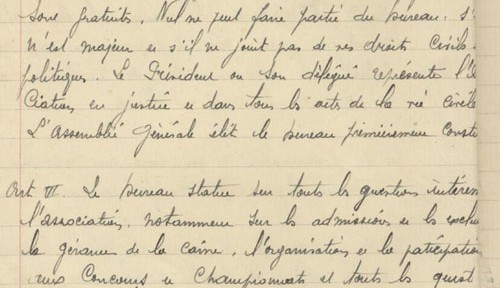 sont gratuits. Nul ne peut faire partie du bureau. s'
n'est majeur et s'il ne jouit pas de ses droits civils
politiques. Le Président ou son délégué représente l'As
ciation en justice et dans tous les actes de la vie civile
L'Assemblée Générale élit le bureau
Art VI. Le bureau statue sur toutes les questions intéres
l'association, notamment sur les admissions et les exclus
la gérance de la caisse, l'organisation et la paticipation
aux Concours et Championnats et toutes les quest